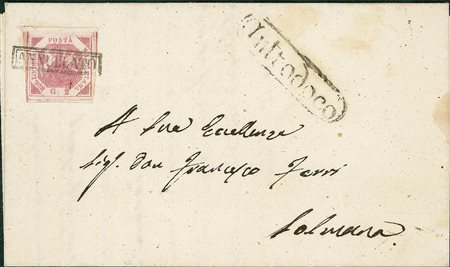 POSTA
ANNULLATO
G. 2
Introdoco
A Sua Eccellenza
Sig. Don Francesco Ferri
Solmona